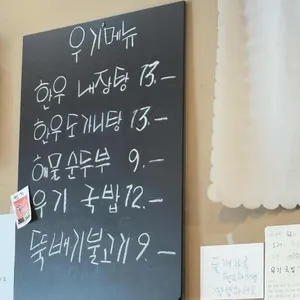 우기메뉴
한우 내장탕 13.-
한우도가니탕 13.-
해물순두부 9.-
우기 국밥 12.-
뚝배기불고기 9.-